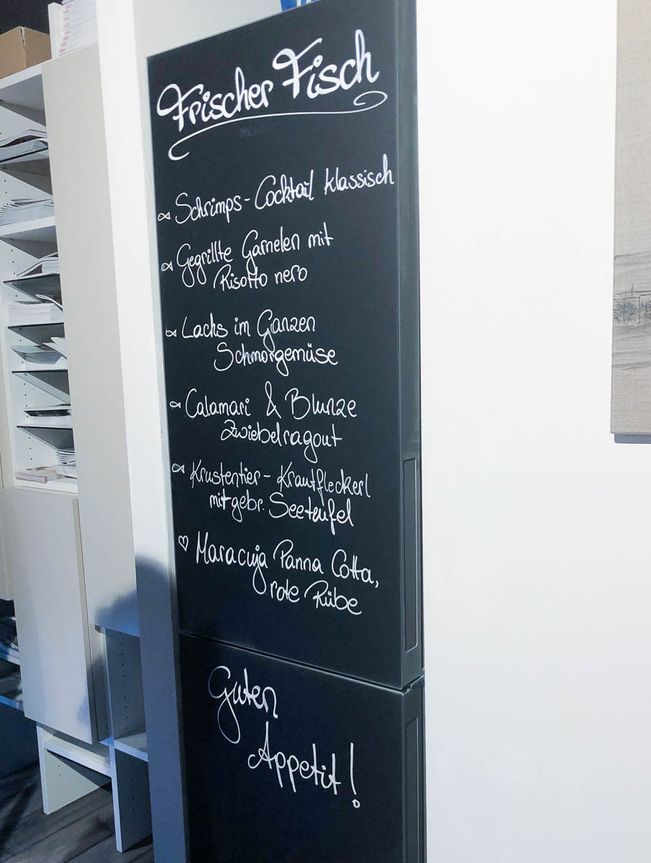 Frischer Fisch
Schrimps-Cocktail klassisch
Gegrillte Garnelen mit
Risotto nero
Lachs im Ganzen
Schmorgemüse
Calamari & Blunze
Zwiebelragout
Krustentier-Krautfleckerl
mit gebr. Seeteufel
Maracuja Panna Cotta,
rote Rübe
Guten
Appetit!